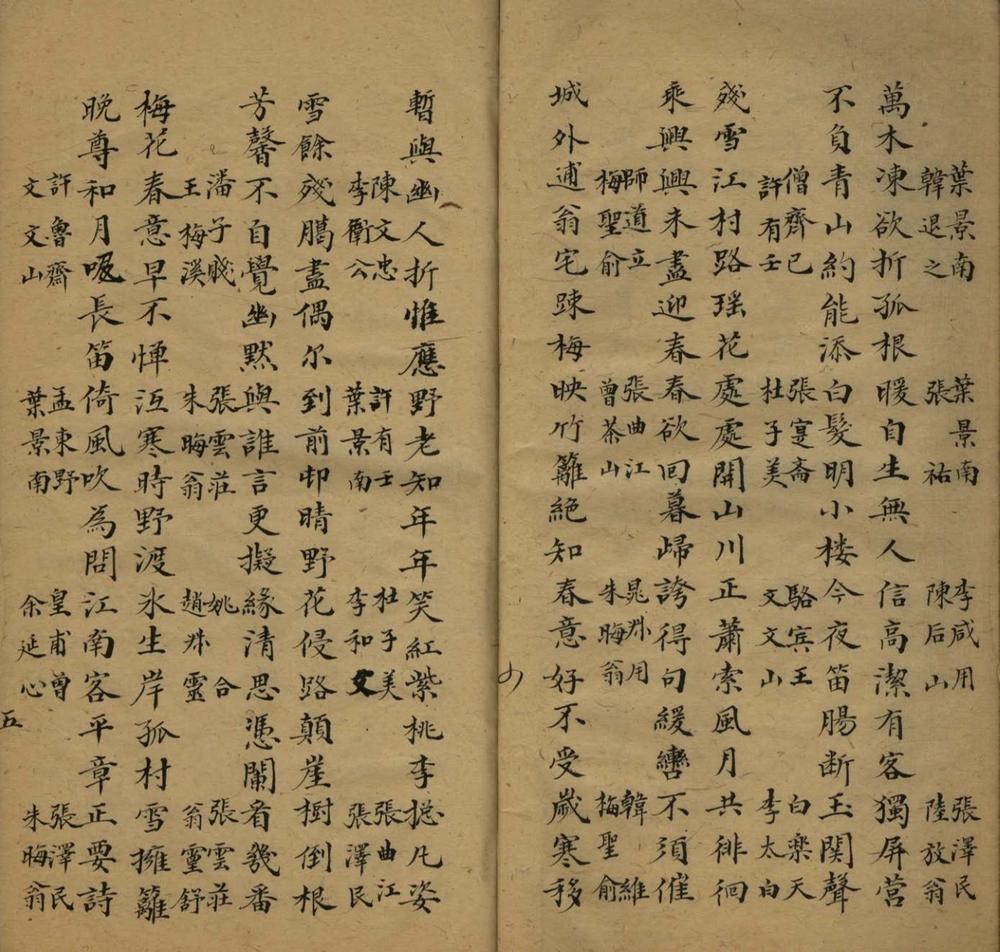 葉景南 葉景南 李咸用 張澤民
韓退之 張祐 陳后山 陸放翁
萬木凍欲折孤根暖自生無人信高潔有客獨屏營
不負青山約能添白髮明小楼今夜笛腸断玉関聲
僧齊己 張寔齋 駱賓王 白樂天
許有壬 杜子美 文文山 李太白
殘雪江村路瑶花處處開山川正蕭索風月共徘徊
乘興興未盡迎春春欲回暮歸誇得句緩轡不須催
師道立 張曲江 晁叔用 韓維
梅聖俞 曾茶山 朱晦翁 梅聖俞
城外逋翁宅踈梅映竹籬絕知春意好不受歲寒移
暫與幽人折惟應野老知年年笑紅紫桃李揔凡姿
陳文忠 許有壬 杜子美 張曲江
李衛公 葉景南 李和文 張澤民
雪餘殘臈盡偶尔到前邨晴野花侵路顛崖樹倒根
芳馨不自覺幽默與誰言更擬緣清思憑闌看幾番
潘子賤 張雲莊 姚合 張雲莊
王梅溪 朱晦翁 趙叔靈 翁靈舒
梅花春意早不憚沍寒時野渡氷生岸孤村雪擁籬
晚尊和月吸長笛倚風吹為問江南客平章正要詩
許魯齋 孟東野 皇甫曾 張澤民
文文山 葉景南 余延心 朱晦翁
五